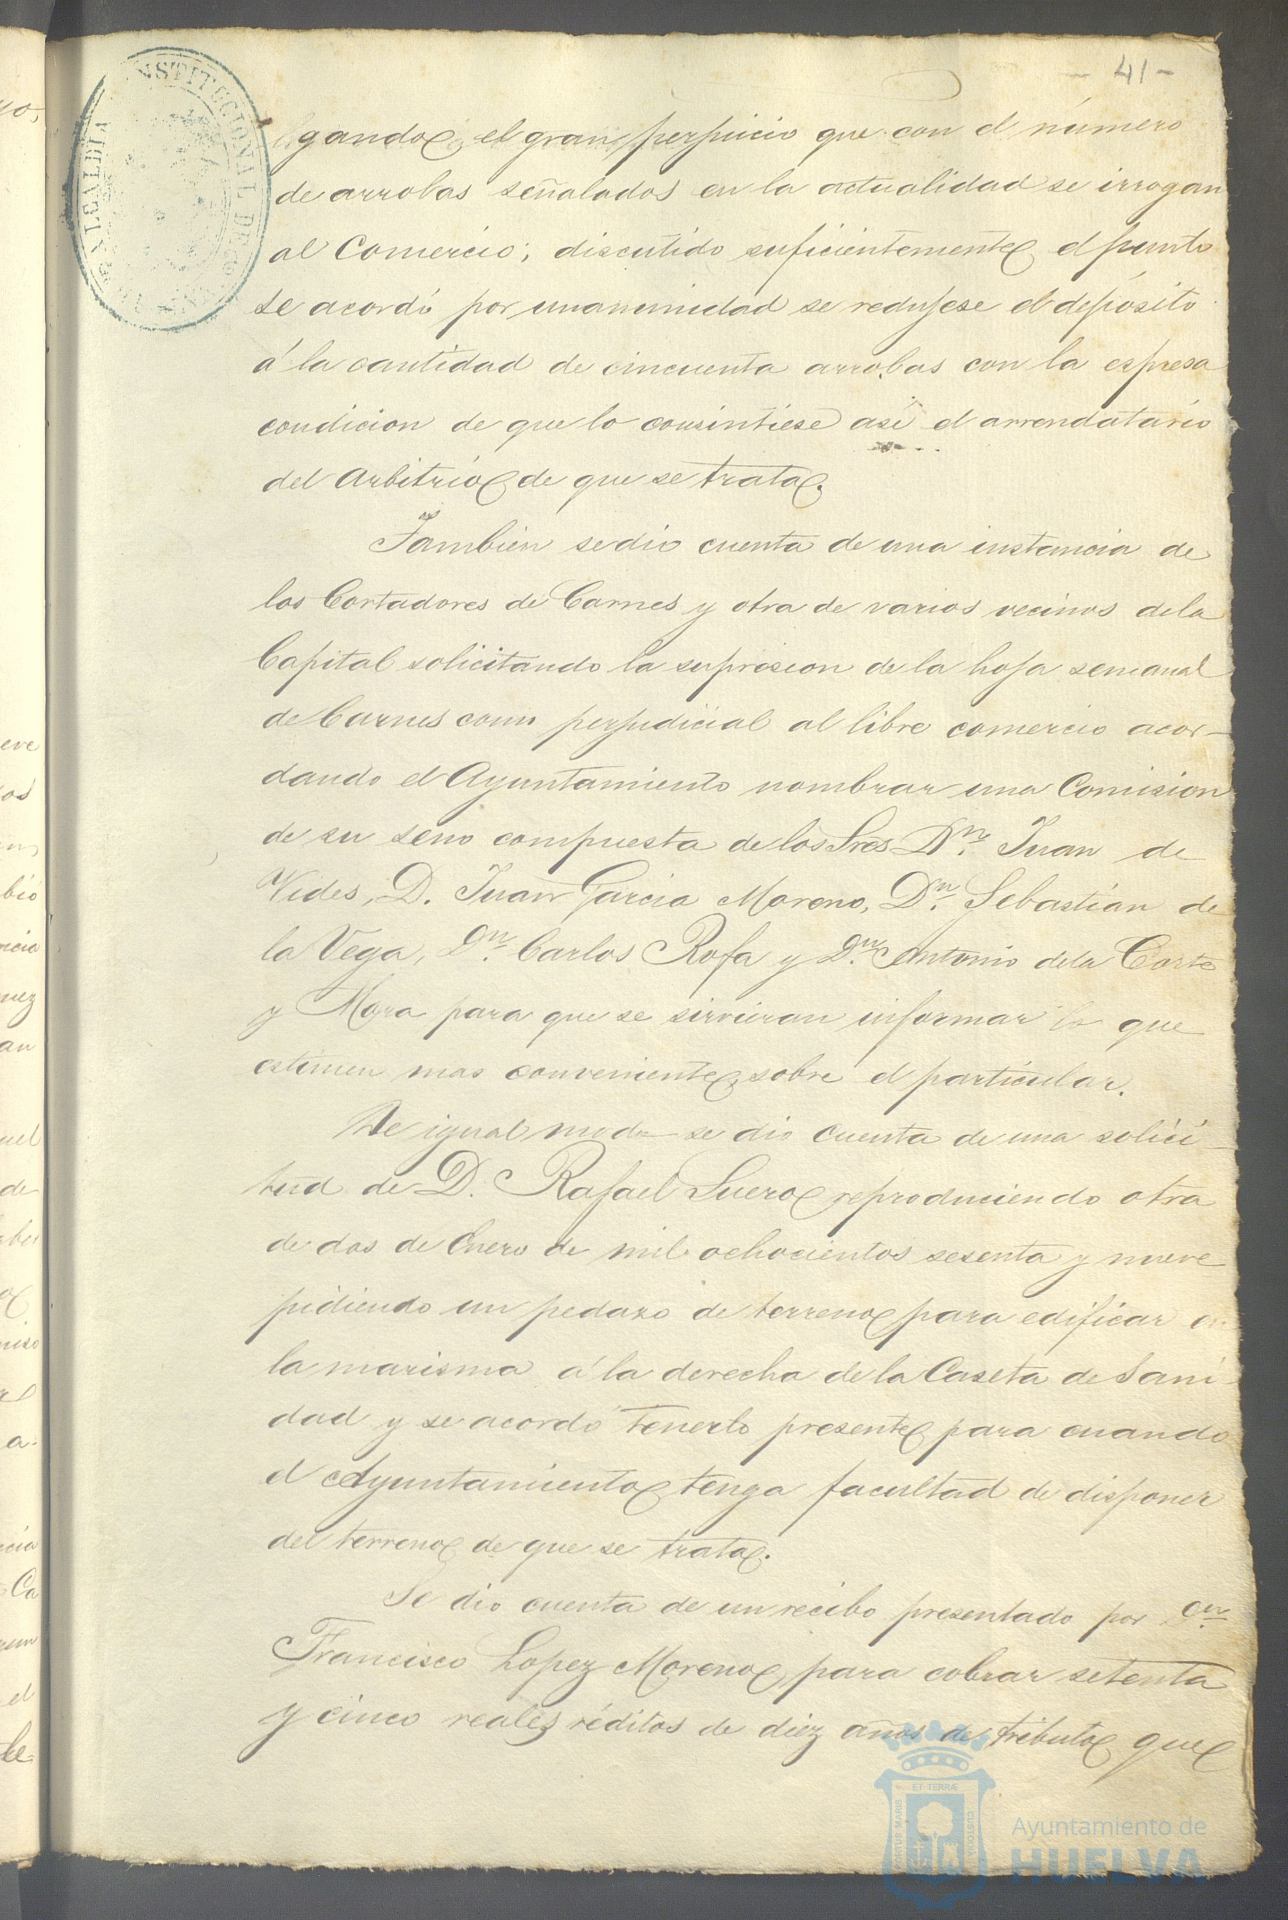 - 41 -
gando el gran perjuicio que con el número
de arrobas señalados en la actualidad se irrogan
al Comercio; discutido suficientemente el punto
se acordó por unanimidad se redujese el depósito
á la cantidad de cincuenta arrobas con la espresa
condicion de que lo consintiese asi el arrendatario
del Arbitrio de que se trata.
Tambien se dio cuenta de una instancia de
los Cortadores de Carnes y otra de varios vecinos de la
Capital solicitando la supresion de la hoja semanal
de Carnes como perjudicial al libre comercio acor-
dando el Ayuntamiento nombrar una Comision
de su seno compuesta de los Sres Dn. Juan de
Vides, D. Juan Garcia Moreno, Dn. Sebastian de
la Vega, Dn. Carlos Rofa y Dn. Antonio de la Corte
y Mora para que se sirvieran informar lo que
estimen mas conveniente sobre el particular.
De igual modo se dio cuenta de una solici-
tud de D. Rafael Suero reproduciendo otra
de dos de Enero de mil ochocientos sesenta y nueve
pidiendo un pedazo de terreno para edificar en
la marisma á la derecha de la Caseta de Sani-
dad y se acordó tenerlo presente para cuando
el Ayuntamiento tenga facultad de disponer
del terreno de que se trata.
Se dio cuenta de un recibo presentado por Dn.
Francisco Lopez Moreno, para cobrar setenta
y cinco reales réditos de diez años de tributo que
ALCALDIA CONSTITUCIONAL DE
PORTUS MARIS ET TERRÆ CUSTODIA
Ayuntamiento de
HUELVA